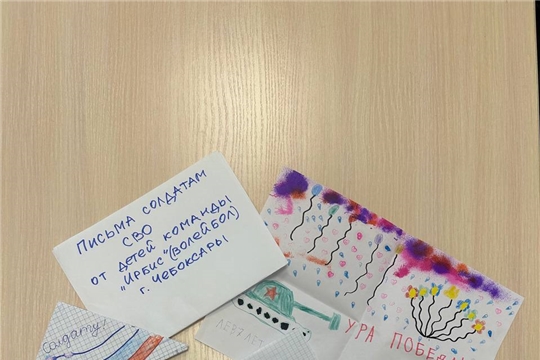 ПИСЬМА СОЛДАТАМ
СВО
ОТ ДЕТЕЙ КОМАНДЫ
"ИРБИС" (ВОЛЕЙБОЛ)
г. ЧЕБОКСАРЫ
Солдату!
ЛЕВ 7 ЛЕТ
УРА ПОБЕДА